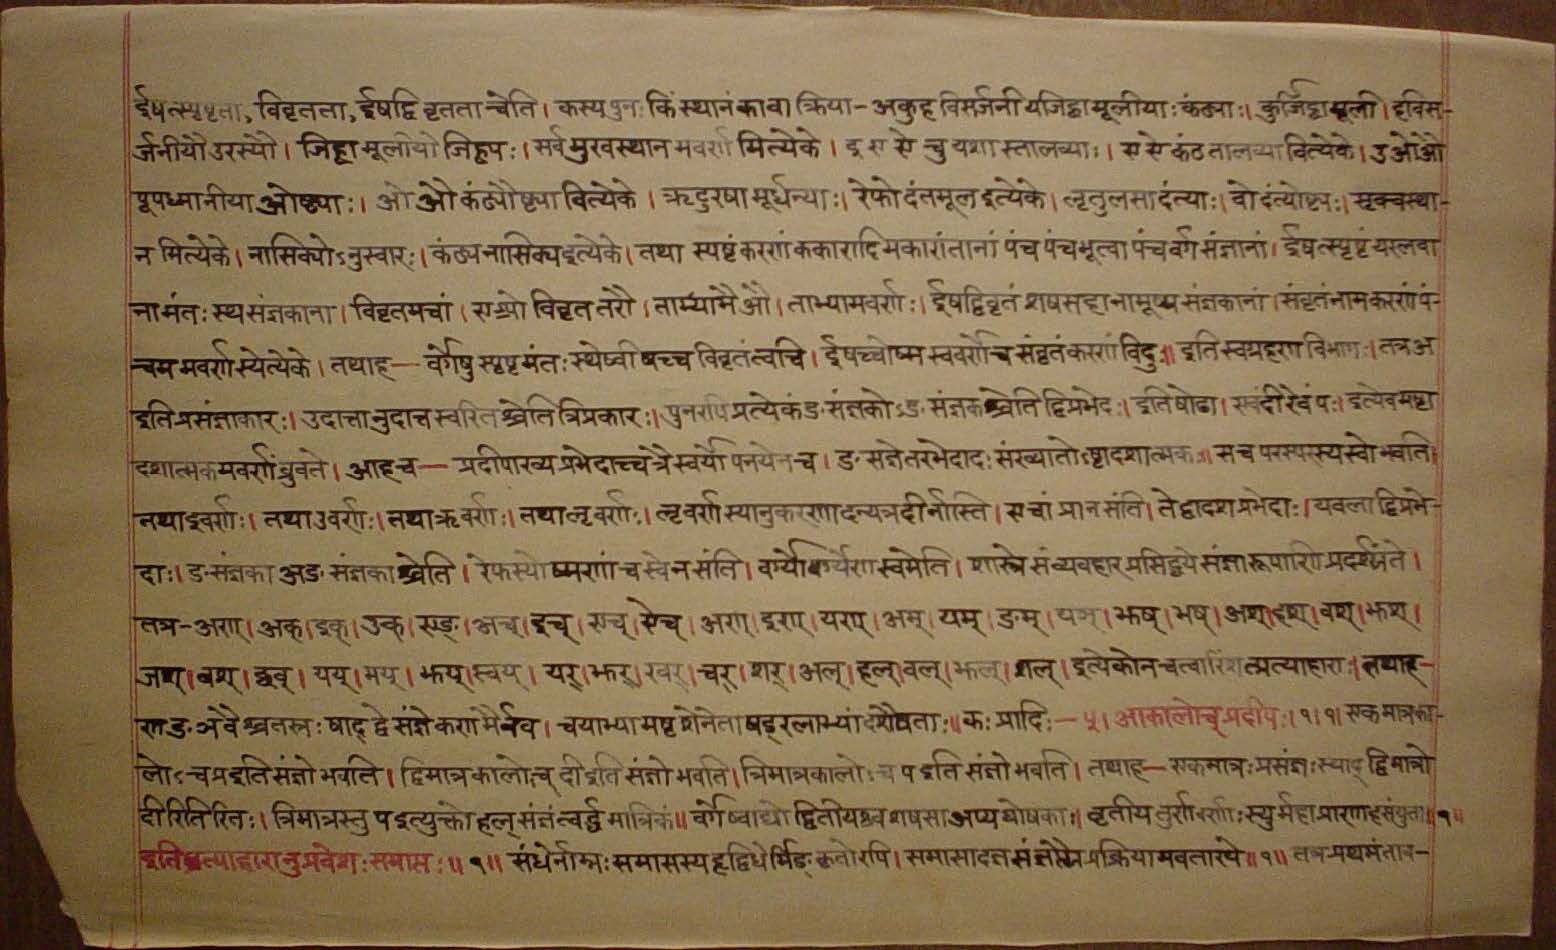 ईषत्स्पृष्टता, विवृतता, ईषद्विवृतता चेति। कस्य पुनः किं स्थानं का वा क्रिया - अकुह विसर्जनीयजिह्वामूलीयाः कंठ्याः। कुर्जिह्वामूली। हविस-
र्जनीयौ उरस्यौ। जिह्वामूलीयो जिह्व्यः। सर्वमुखस्थानमवर्णमित्येके। इ ए ऐ चु यशास्तालव्याः। ए ऐ कंठतालव्यावित्येके। उ ओ औ
पूपध्मानीया ओष्ठ्याः। ओ औ कंठ्यौष्ठ्यावित्येके। ऋटुरषा मूर्धन्याः। रेफो दंतमूल इत्येके। ऌतुलसा दंत्याः। वो दंत्योष्ठ्यः। सृक्वस्था-
नमित्येके। नासिक्योऽनुस्वारः। कंठ्यनासिक्य इत्येके। तथा स्पृष्टं करणं ककारादिमकारांतानां पंच पंच भूत्वा पंचवर्गसंज्ञानां। ईषत्स्पृष्टं यरलवा
नामंतःस्थसंज्ञकाना। विवृतमचां। एओ विवृततरौ। ताभ्यामैऔ। ताभ्यामवर्णः। ईषद्विवृतं शषसहानामूष्मसंज्ञकानां। संवृतं नाम करणं पं-
चममवर्णस्येत्येके। तथाह — वर्गेषु स्पृष्टमंतःस्थेष्वीषच्च विवृतं त्वचि। ईषच्चोष्मस्ववर्णे च संवृतं करणं विदुः॥ इति स्वग्रहण विभागः। तत्र अ
इति प्रसंज्ञाकारः। उदात्तानुदात्तस्वरितश्चेति त्रिप्रकारः। पुनरपि प्रत्येकं ङसंज्ञकोऽङसंज्ञकश्चेति द्विप्रभेदः। इति षोढा। एवं दीरेवं पः। इत्येवमष्टा
दशात्मकमवर्णं ब्रुवते। आह च — प्रदीपाख्यप्रभेदाच्च त्रैस्वर्योपनयेन च। ङसंज्ञेतरभेदादः संख्यातोऽष्टादशात्मकः॥ स च परस्परस्य स्वो भवति।
तथा इवर्णः। तथा उवर्णः। तथा ऋवर्णः। तथा ऌवर्णः। ऌवर्णस्यानुकरणादन्यत्र दीर्नास्ति। एचां प्रा न संति। ते द्वादशप्रभेदाः। यवला द्विप्रभे-
दाः। ङसंज्ञका अङसंज्ञकाश्चेति। रेफस्योष्मणां च स्वे न संति। वर्ग्यो वर्ग्येण स्वमेति। शास्त्रे संव्यवहारप्रसिद्धये संज्ञारूपाणि प्रदर्श्यंते।
तत्र - अण्। अक्। इक्। उक्। एङ्। अच्। इच्। एच्। ऐच्। अण्। इण्। यण्। अम्। यम्। ङम्। यञ्। झष्। भष्। अश्। हश्। वश्। झश्।
जश्। बश्। छव्। यय्। मय्। झय्। खय्। यर्। झर्। खर्। चर्। शर्। अल्। हल्। वल्। झल्। शल्। इत्येकोनचत्वारिंशत्प्रत्याहाराः। तथाह -
दशैवताः॥ कः प्रादिः — प्। आकालोच् प्रदीपः।१।१। एकमात्रका-
लोऽच् प्र इति संज्ञो भवति। द्विमात्रकालोच् दी इति संज्ञो भवति। त्रिमात्रकालोऽच प इति संज्ञो भवति। तथाह — एकमात्रः प्रसंज्ञः स्याद् द्विमात्रो
दीरितीरितः। त्रिमात्रस्तु प इत्युक्तो हल्संज्ञं त्वर्द्धमात्रिकं॥ वर्गेष्वाद्यो द्वितीयश्च शषसा अप्यघोषकाः। तृतीयतुर्य वर्णाः स्युर्महाप्राण हसंयुताः॥१॥
इति प्रत्याहारानुप्रवेशः समाप्तः॥१॥ संधेर्नाम्नः समासस्य हृद्विधेर्मिङ्कृतोरपि। समासादत्त प्रक्रियामवतारये॥१॥ तत्र प्रथमं ताव-